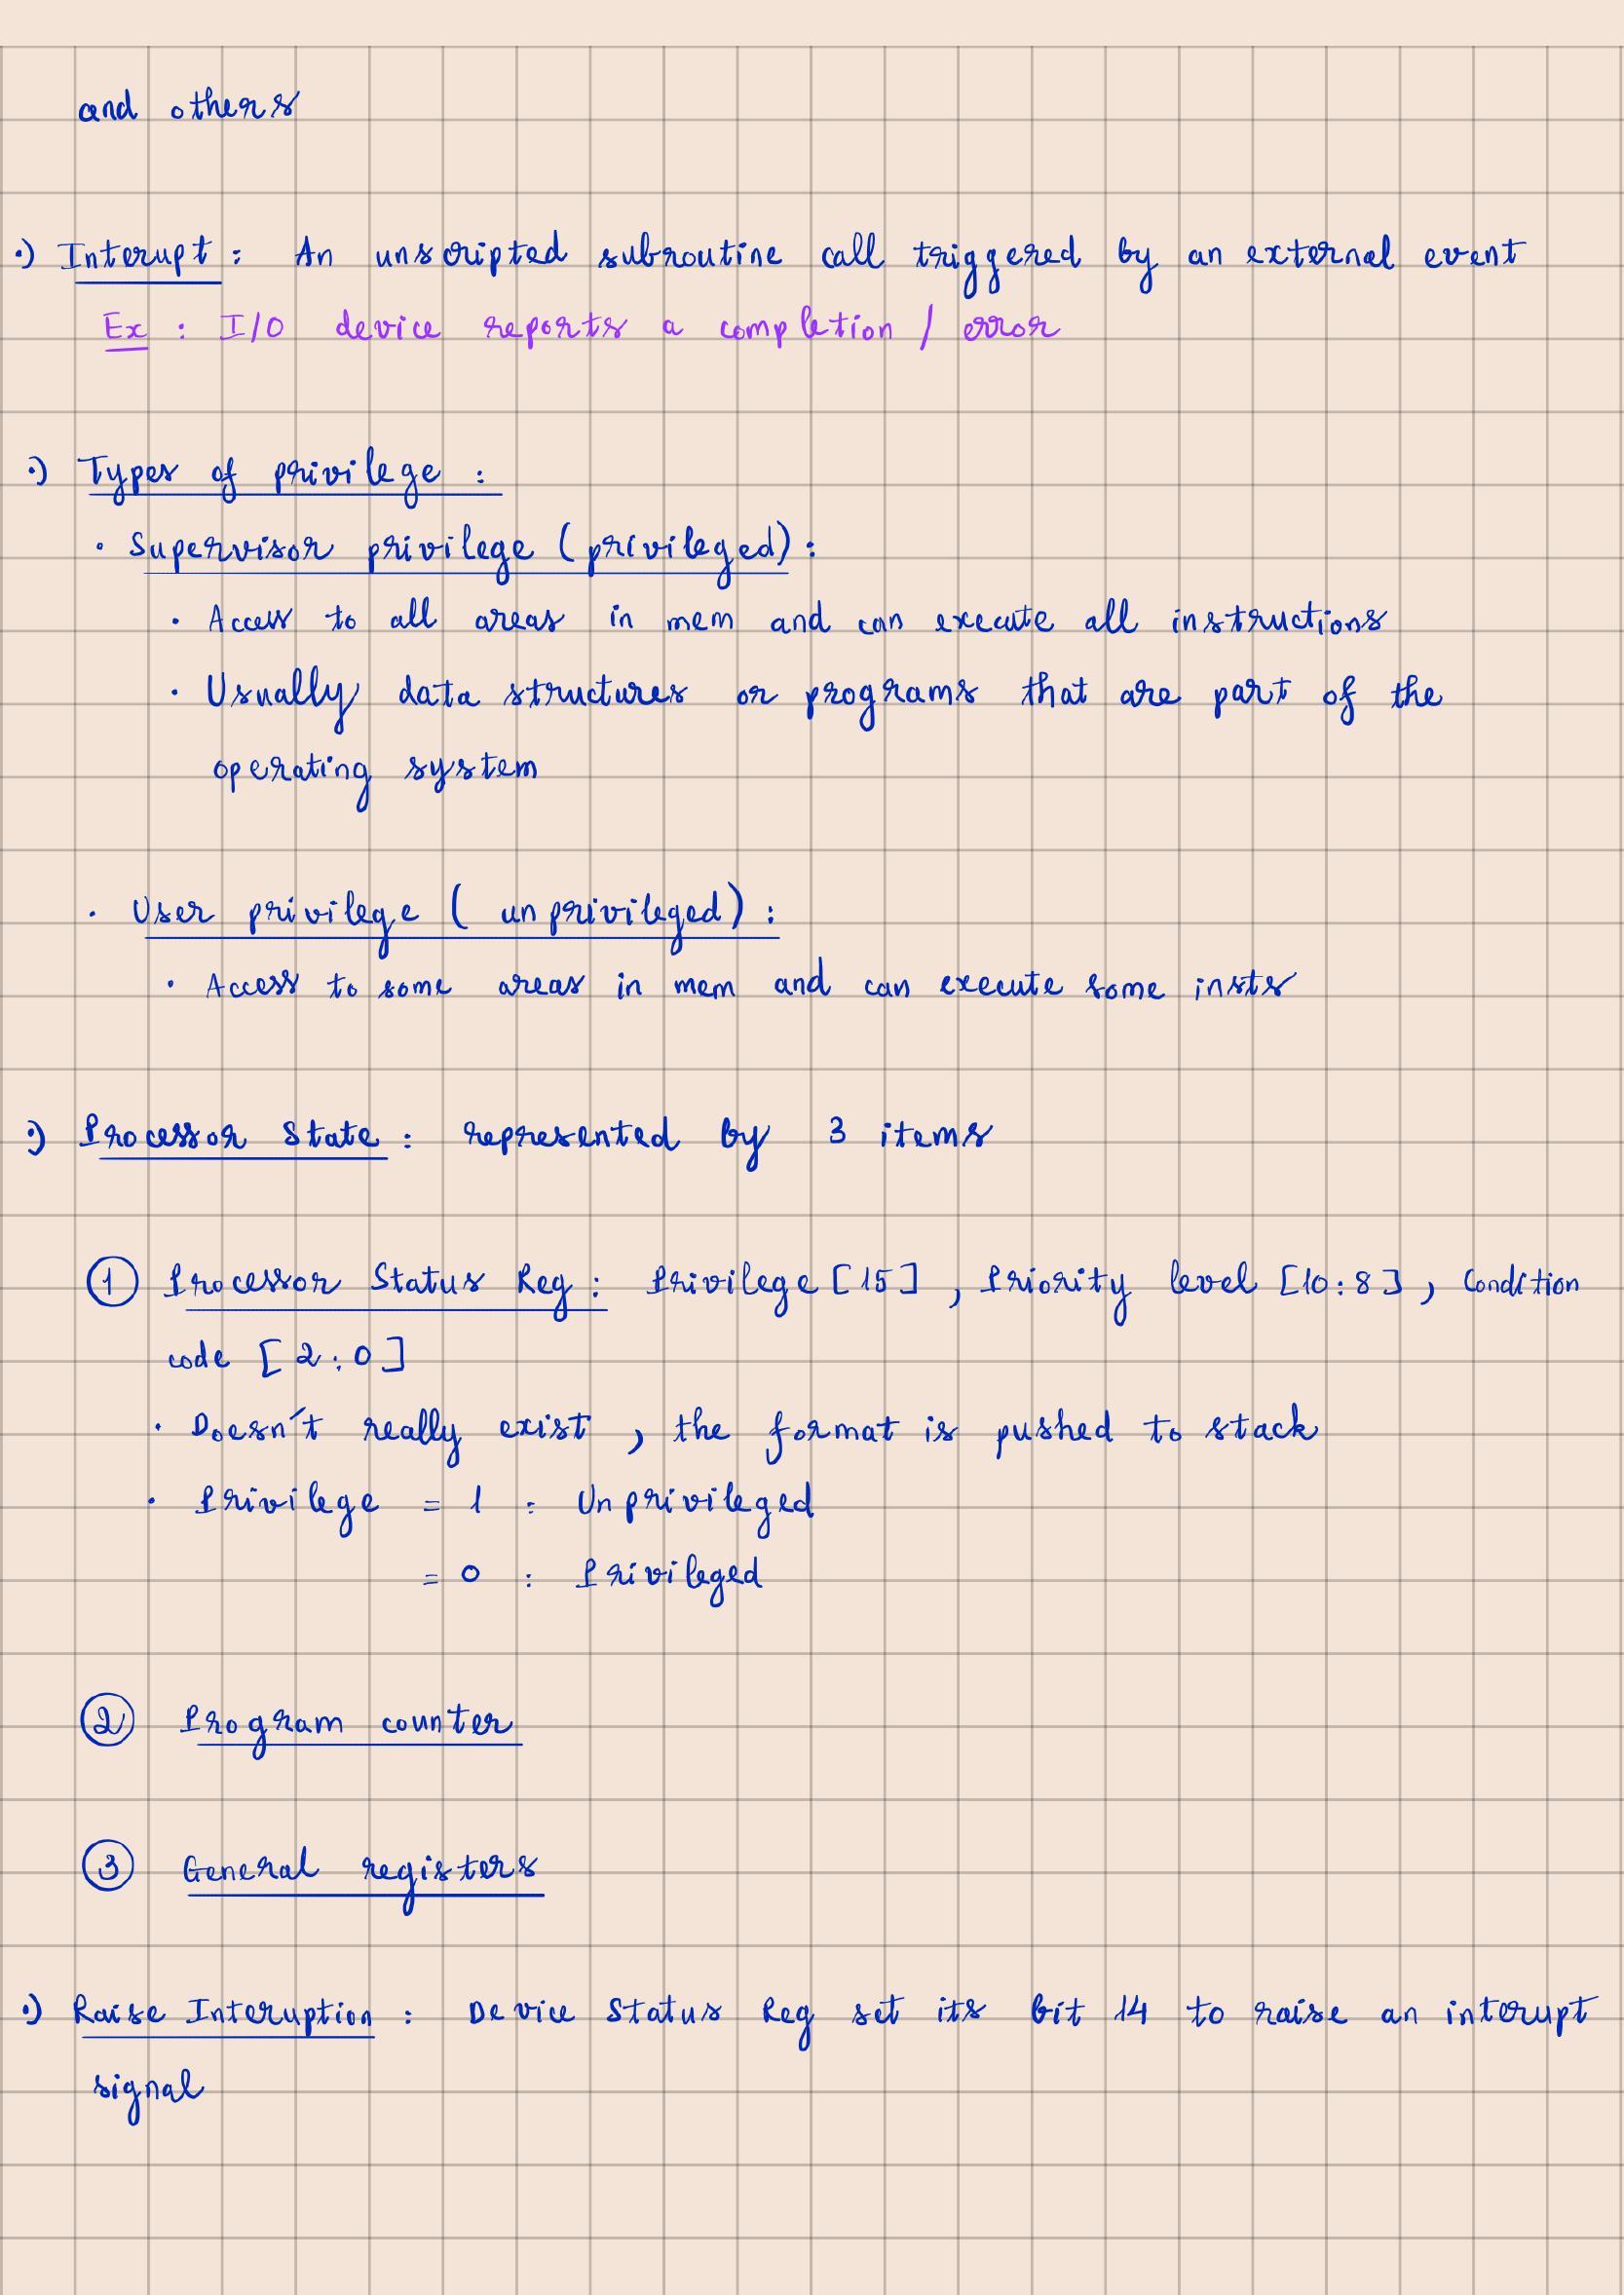 and others
•) Interupt : An unscripted subroutine call triggered by an external event
Ex : I/O device reports a completion / error
•) Types of privilege :
• Supervisor privilege (privileged) :
• Access to all areas in mem and can execute all instructions
• Usually data structures or programs that are part of the
operating system
• User privilege ( unprivileged) :
• Access to some areas in mem and can execute some insts
•) Processor State : represented by 3 items
① Processor Status Reg : Privilege [15] , Priority level [10:8] , Condition
code [2:0]
• Doesn't really exist , the format is pushed to stack
• Privilege = 1 : Unprivileged
= 0 : Privileged
② Program counter
③ General registers
•) Raise Interuption : Device Status Reg set its bit 14 to raise an interupt
signal